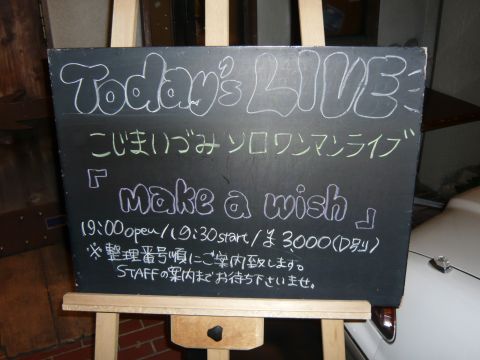 Today's LIVE
こじまいづみ ソロワンマンライブ
『make a wish』
19:00open/19:30start/¥3,000(D別)
※整理番号順にご案内致します。
STAFFの案内までお待ち下さいませ。